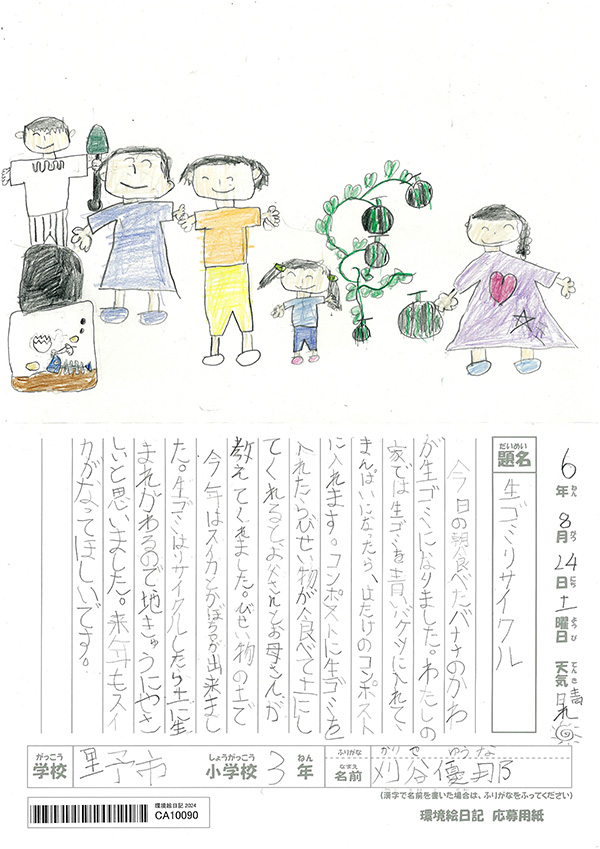 6年 8月 24日 土曜日 天気 晴れ
ねん がつ にち ようび てんき
だいめい
題名 生ゴミリサイクル
今日の朝食べたバナナのかわ
が生ゴミになりました。わたしの
家では生ゴミを青いバケツに入れて、
まんぱいになったら、はたけのコンポスト
に入れます。コンポストに生ゴミを
入れたらびせい物が食べて土にし
てくれるとお父さんとお母さんが
教えてくれました。びせい物の土で
今年はスイカとかぼちゃが出来まし
た。生ゴミはリサイクルしたら土に生
まれかわるので地きゅうにやさ
しいと思いました。来年もスイ
カがなってほしいです。
がっこう しょうがっこう ねん ふりがな かりせ ゆうな
学校 野市 小学校 3年 なまえ 名前 刈谷 優那
(漢字で名前を書いた場合は、ふりがなをふってください)
環境絵日記 2024
CA10090
環境絵日記 応募用紙